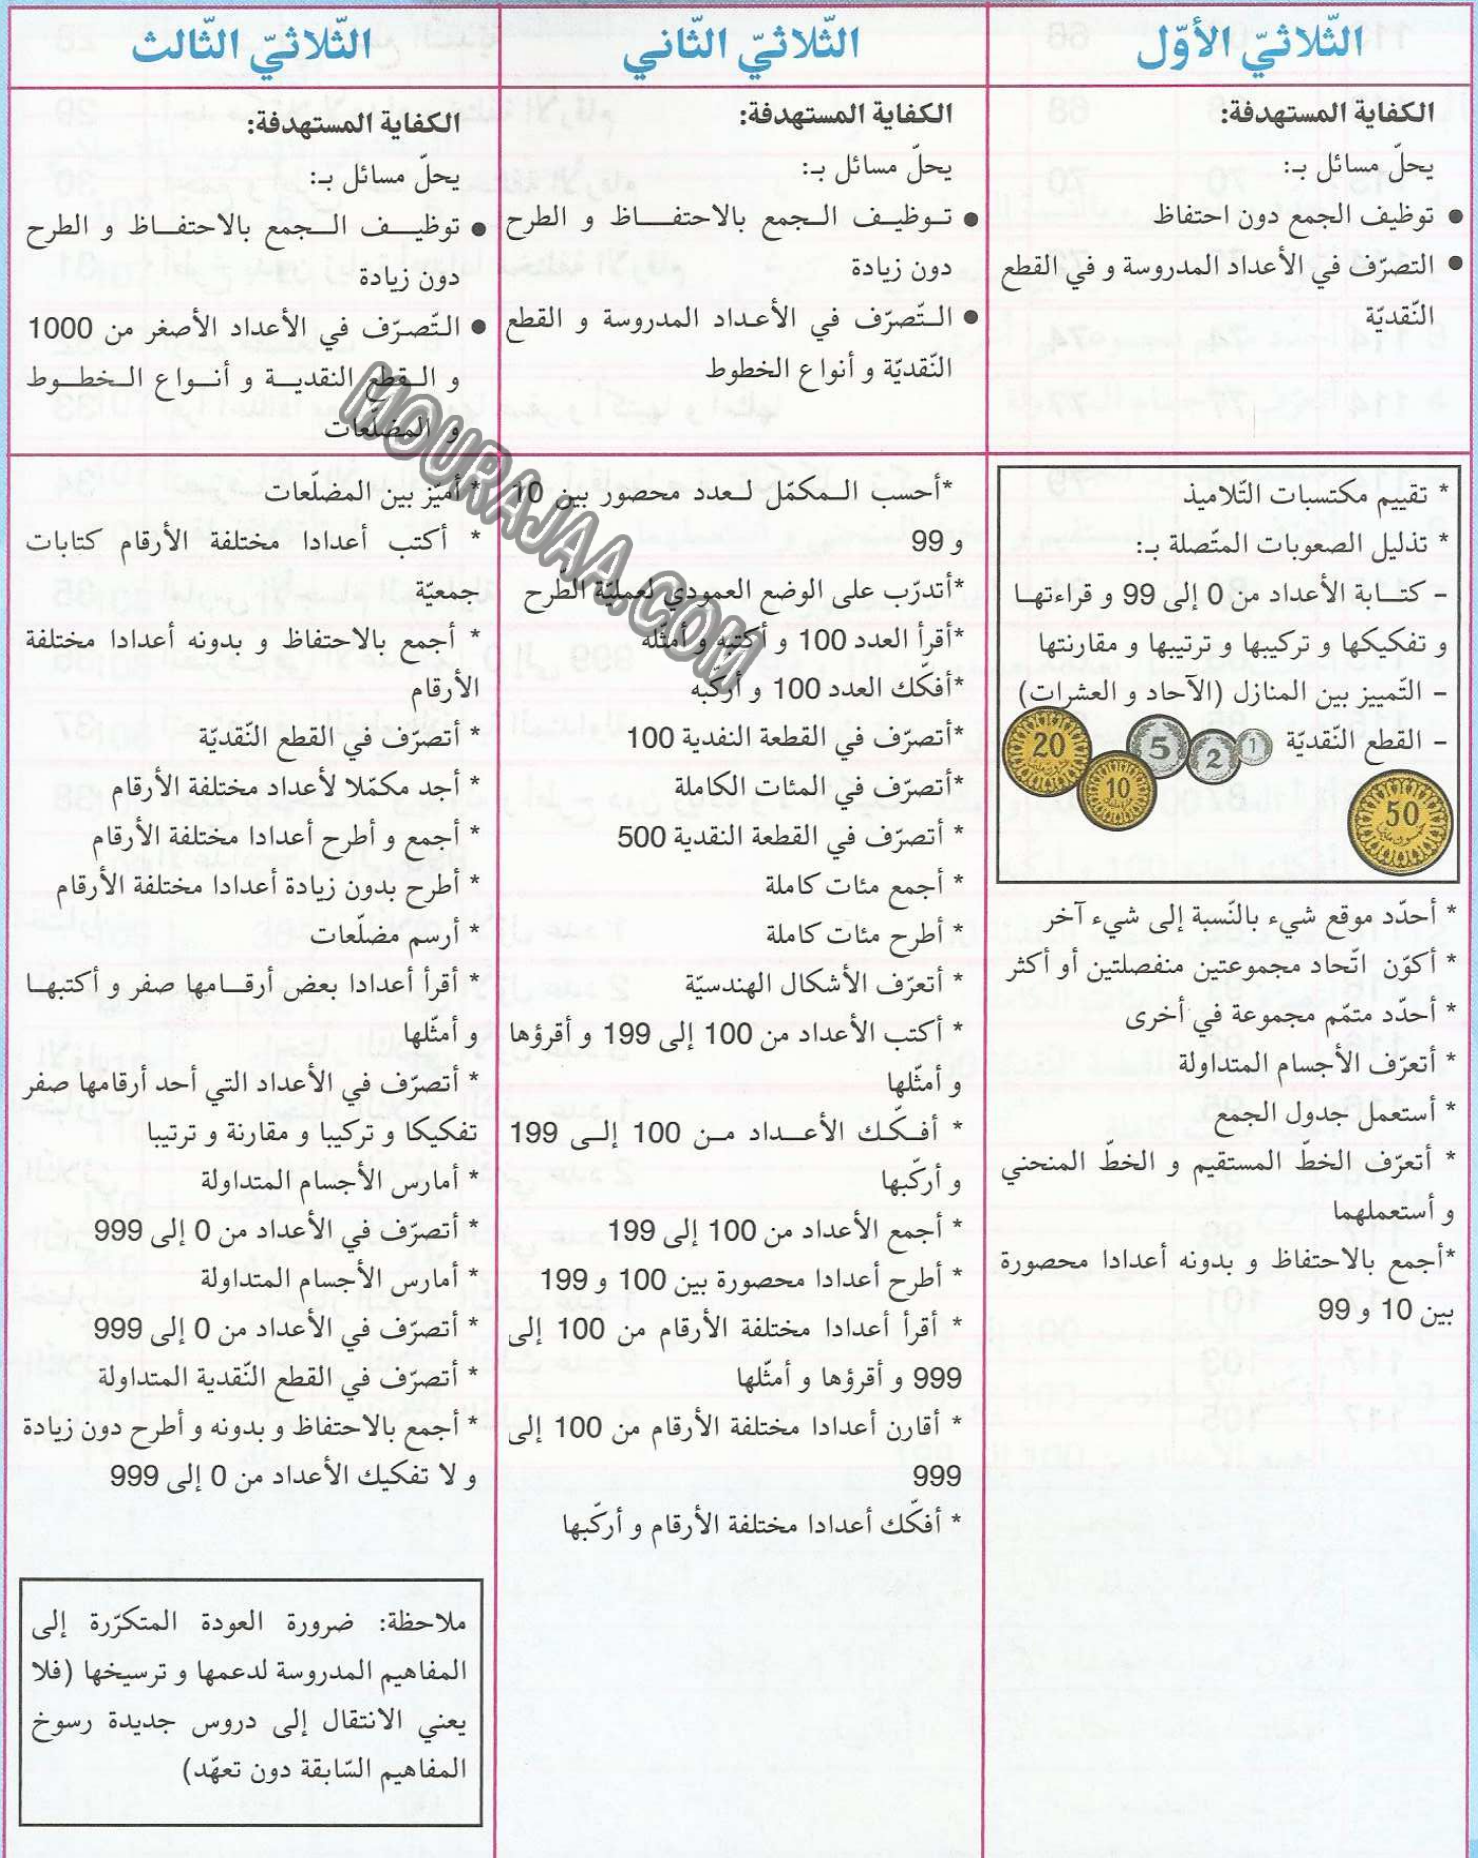 الثّلاثيّ الأوّل
الكفاية المستهدفة:
يحلّ مسائل بـ:
● توظيف الجمع دون احتفاظ
● التصرّف في الأعداد المدروسة و في القطع
النّقديّة
* تقييم مكتسبات التّلاميذ
* تذليل الصعوبات المتّصلة بـ:
- كتابة الأعداد من 0 إلى 99 و قراءتها
و تفكيكها و تركيبها و ترتيبها و مقارنتها
- التّمييز بين المنازل (الآحاد و العشرات)
- القطع النّقديّة
1
2
5
20
10
50
* أحدّد موقع شيء بالنّسبة إلى شيء آخر
* أكوّن اتّحاد مجموعتين منفصلتين أو أكثر
* أحدّد متمّم مجموعة في أخرى
* أتعرّف الأجسام المتداولة
* أستعمل جدول الجمع
* أتعرّف الخطّ المستقيم و الخطّ المنحني
و أستعملهما
*أجمع بالاحتفاظ و بدونه أعدادا محصورة
بين 10 و 99
الثّلاثيّ الثّاني
الكفاية المستهدفة:
يحلّ مسائل بـ:
● توظيف الجمع بالاحتفاظ و الطرح
دون زيادة
● التّصرّف في الأعداد المدروسة و القطع
النّقديّة و أنواع الخطوط
*أحسب المكمّل لعدد محصور بين 10
و 99
*أتدرّب على الوضع العمودي لعمليّة الطّرح
*أقرأ العدد 100 و أكتبه و أمثّله
*أفكّك العدد 100 و أركّبه
*أتصرّف في القطعة النفدية 100
*أتصرّف في المئات الكاملة
* أتصرّف في القطعة النقدية 500
* أجمع مئات كاملة
* أطرح مئات كاملة
* أتعرّف الأشكال الهندسيّة
* أكتب الأعداد من 100 إلى 199 و أقرؤها
و أمثّلها
* أفكّك الأعداد من 100 إلى 199
و أركّبها
* أجمع الأعداد من 100 إلى 199
* أطرح أعدادا محصورة بين 100 و 199
* أقرأ أعدادا مختلفة الأرقام من 100 إلى
999 و أقرؤها و أمثّلها
* أقارن أعدادا مختلفة الأرقام من 100 إلى
999
* أفكّك أعدادا مختلفة الأرقام و أركّبها
الثّلاثيّ الثّالث
الكفاية المستهدفة:
يحلّ مسائل بـ:
● توظيف الجمع بالاحتفاظ و الطرح
دون زيادة
● التّصرّف في الأعداد الأصغر من 1000
و القطع النقدية و أنواع الخطوط
و المضلّعات
* أميّز بين المضلّعات
* أكتب أعدادا مختلفة الأرقام كتابات
جمعيّة
* أجمع بالاحتفاظ و بدونه أعدادا مختلفة
الأرقام
* أتصرّف في القطع النّقديّة
* أجد مكمّلا لأعداد مختلفة الأرقام
* أجمع و أطرح أعدادا مختلفة الأرقام
* أطرح بدون زيادة أعدادا مختلفة الأرقام
* أرسم مضلّعات
* أقرأ أعدادا بعض أرقامها صفر و أكتبها
و أمثّلها
* أتصرّف في الأعداد التي أحد أرقامها صفر
تفكيكا و تركيبا و مقارنة و ترتيبا
* أمارس الأجسام المتداولة
* أتصرّف في الأعداد من 0 إلى 999
* أمارس الأجسام المتداولة
* أتصرّف في الأعداد من 0 إلى 999
* أتصرّف في القطع النّقدية المتداولة
* أجمع بالاحتفاظ و بدونه و أطرح دون زيادة
و لا تفكيك الأعداد من 0 إلى 999
ملاحظة: ضرورة العودة المتكرّرة إلى
المفاهيم المدروسة لدعمها و ترسيخها (فلا
يعني الانتقال إلى دروس جديدة رسوخ
المفاهيم السّابقة دون تعهّد)
MOURAJAA.COM